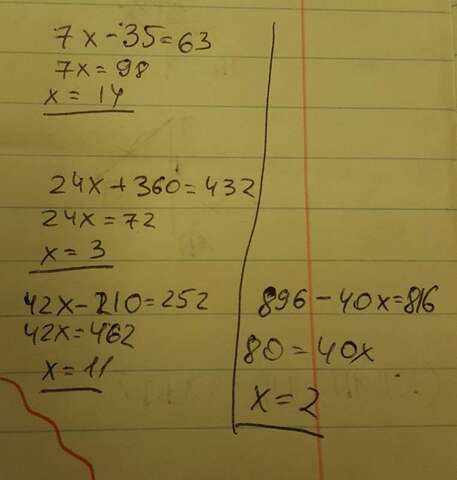 7x-35=63
7x=98
x=14
24x+360=432
24x=72
x=3
42x-210=252
42x=462
x=11
896-40x=816
80=40x
x=2